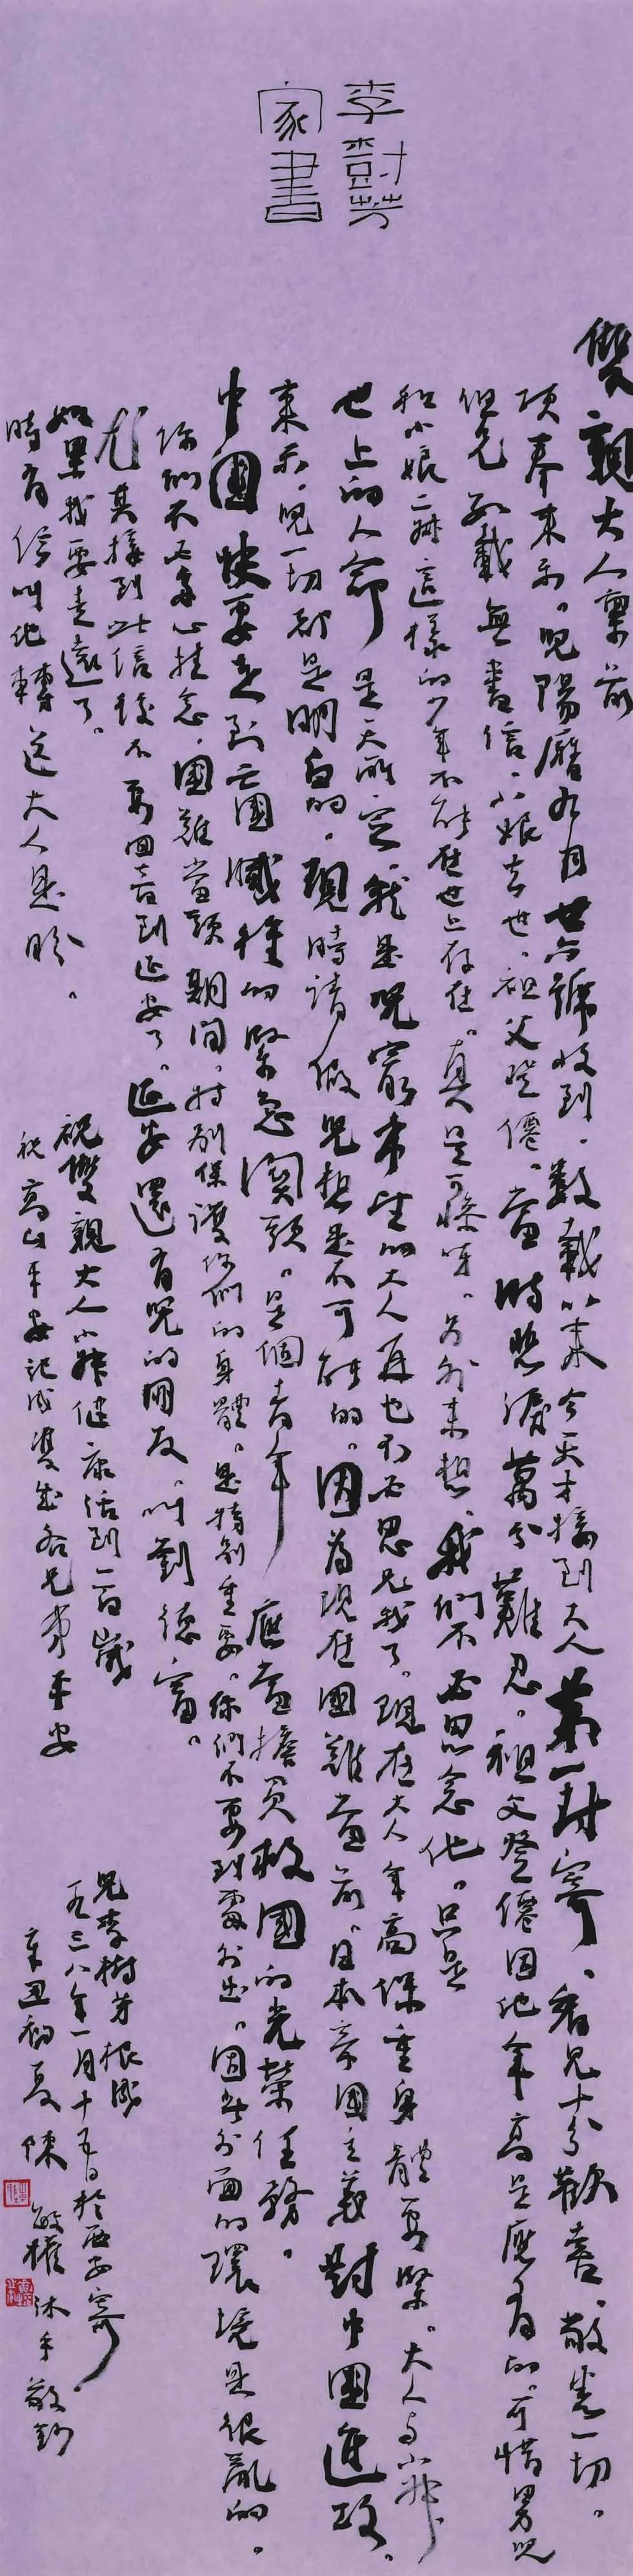 李樹芳
家書
雙親大人稟前
頃奉來示。兒陽曆九月廿六號收到。數載以來今天才接到大人第一封寄。看見十分歡喜。敬悉一切。
但兄弟數載無書信。小娘去世。祖父登僊。當時悲淚萬分難忍。祖父登僊因他年高是應有的。可惜男兒
和小娘二妹這樣的少年不能在世上存在。真是可憐呀。另外來想。我們不必思念他。只是
世上的人命是天所定。就是兒家希望的大人再也不必思兒我了。現在大人年高保重身體要緊。大人與小妹
來示。兒一切都是明白的。現時請假兒想是不可能的。因為現在國難當前。日本帝國主義對中國進攻。
中國快要走到亡國滅種的緊急関頭。是個青年應當擔負救國的光榮任務。
你們不必多心挂念。國難當頭期間。特別保護你們的身體。是特別重要。你們不要到處外出。因此外面的環境是很亂的。
尤其接到此信後不要回音到延安了。延安還有兒的朋友。叫劉德富。
如果我要走遠了。
時有信叫他轉送大人是盼。
祝雙親大人小妹健康活到百歲
祝高山平安記成雙成各兄弟平安
兒李樹芳根成
一九三八年一月十五日於西安寄
辛丑初夏陳敏權沐手敬鈔